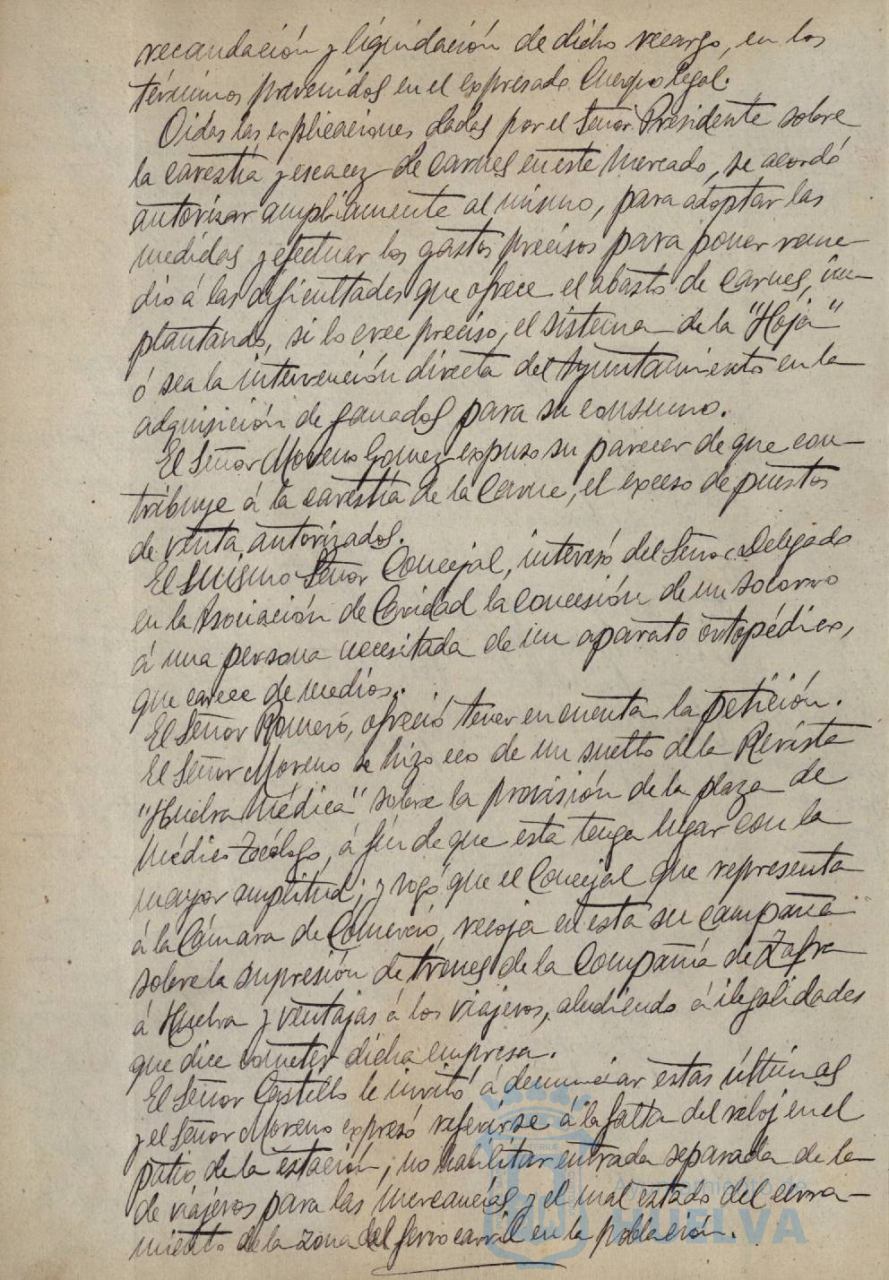 recaudación y liquidación de dicho recargo, en los
términos prevenidos en el expresado Cuerpo legal.
Oidas las explicaciones dadas por el Señor Presidente sobre
la carestía y escacez de carnes en este Mercado, se acordó
autorizar ampliamente al mismo, para adoptar las
medidas y efectuar los gastos precisos para poner reme-
dio á las dificultades que ofrece el abasto de carnes, im-
plantando, si lo cree preciso, el sistema de la "Hoja"
ó sea la intervención directa del Ayuntamiento en la
adquisición de ganados para su consumo.
El Señor Moreno Gomez expuso su parecer de que con-
tribuye á la carestía de la Carne, el exceso de puestos
de venta autorizados.
El mismo Señor Concejal, interesó del Señor Delegado
en la Asociación de Caridad la concesión de un socorro
á una persona necesitada de un aparato ortopédico,
que carece de medios.
El Señor Romero, ofreció tener en cuenta la petición.
El Señor Moreno se hizo eco de un suelto de la Revista
"Huelva Médica" sobre la provisión de la plaza de
Médico Tocólogo, á fin de que esta tenga lugar con la
mayor amplitud; y rogó que el Concejal que representa
á la Cámara de Comercio, recoja en esta su campaña
sobre la supresión de trenes de la Compañía de Zafra
á Huelva y ventajas á los viajeros, aludiendo á ilegalidades
que dice cometer dicha empresa.
El Señor Castillo le invitó á denunciar estas últimas
y el Señor Moreno expresó referirse á la falta del reloj en el
patio de la estación; no habilitar entrada separada de la
de viajeros para las mercancías y el mal estado del cerra-
miento de la zona del ferrocarril en la población.
Ayuntamiento de
HUELVA